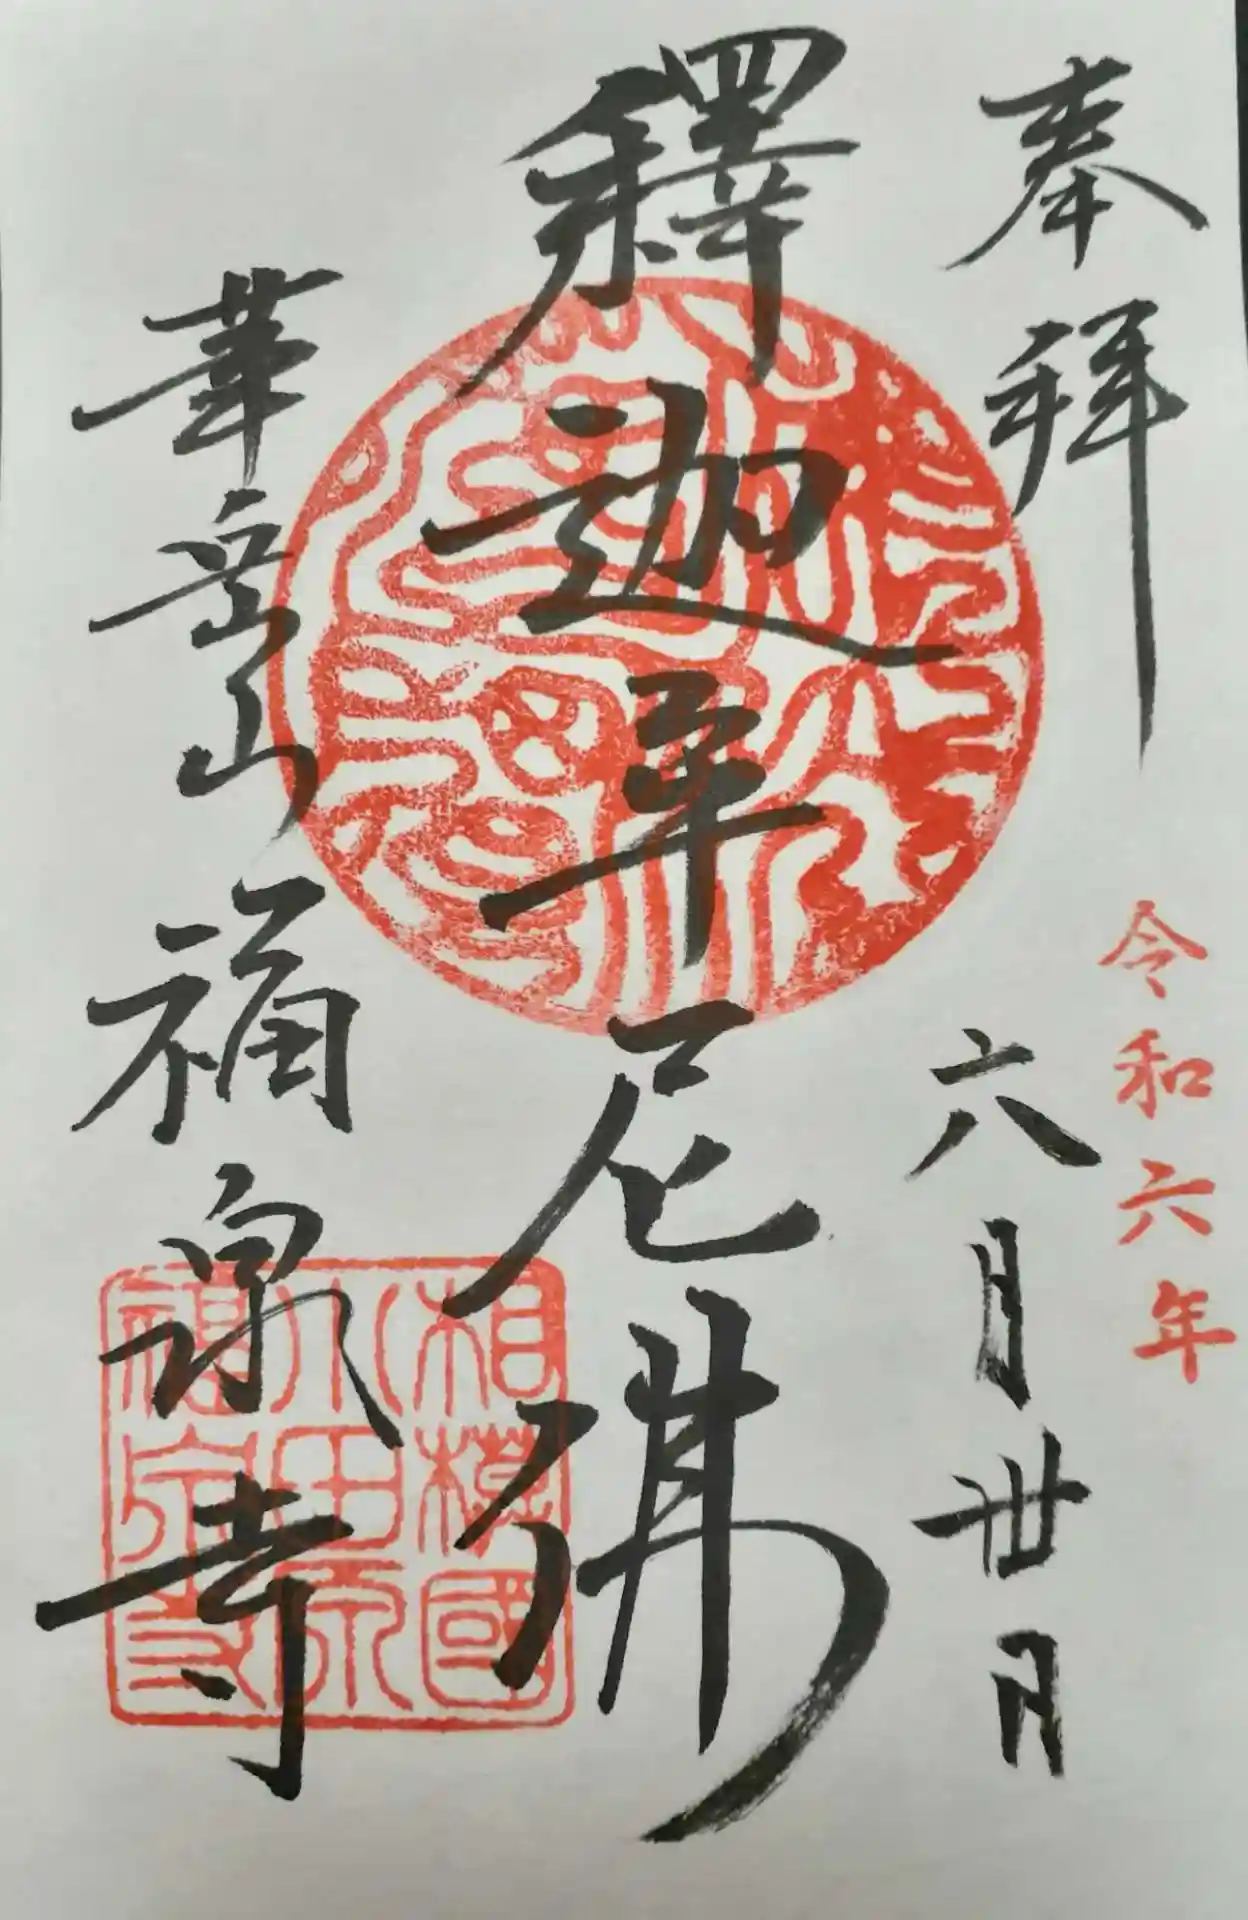 奉拜
令和六年
六月丗日
釋迦牟尼佛
華岳山福泉寺
相模國
小田原
福泉寺